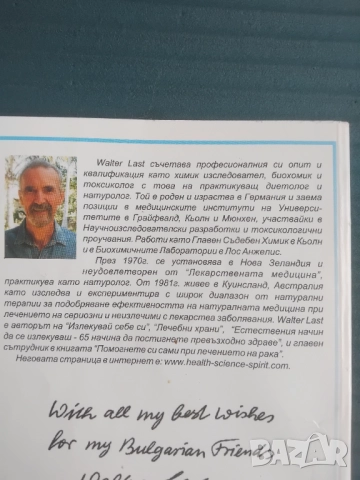 Walter Last съчетава професионалния си опит и
квалификация като химик изследовател, биохомик и
токсиколог с това на практикуващ диетолог и
натуролог. Той е роден и израства в Германия и заема
позиции в медицинските институти на Универси-
тетите в Грайфвалд, Кьолн и Мюнхен, участвайки в
Научноизследователски разработки и токсикологични
проучвания. Работи като Главен Съдебен Химик в Кьолн
и в Биохимичните Лаборатории в Лос Анжелис.
През 1970г. се установява в Нова Зеландия и
неудовлетворен от "Лекарствената медицина",
практикува като натуролог. От 1981г. живее в Куинсланд, Австралия
като изследва и експериментира с широк диапазон от натурални
терапии за подобряване ефективността на натуралната медицина при
лечението на сериозни и неизлечими с лекарства заболявания. Walter Last
е авторът на "Излекувай себе си", "Лечебни храни", "Естествения начин
да се излекуваш - 65 начина да постигнате превъзходно здраве", и главен
сътрудник в книгата "Помогнете си сами при лечението на рака".
Неговата страница в интернет е: www.health-science-spirit.com.
With all my best wishes
for my Bulgarian Friends,
BAZAR